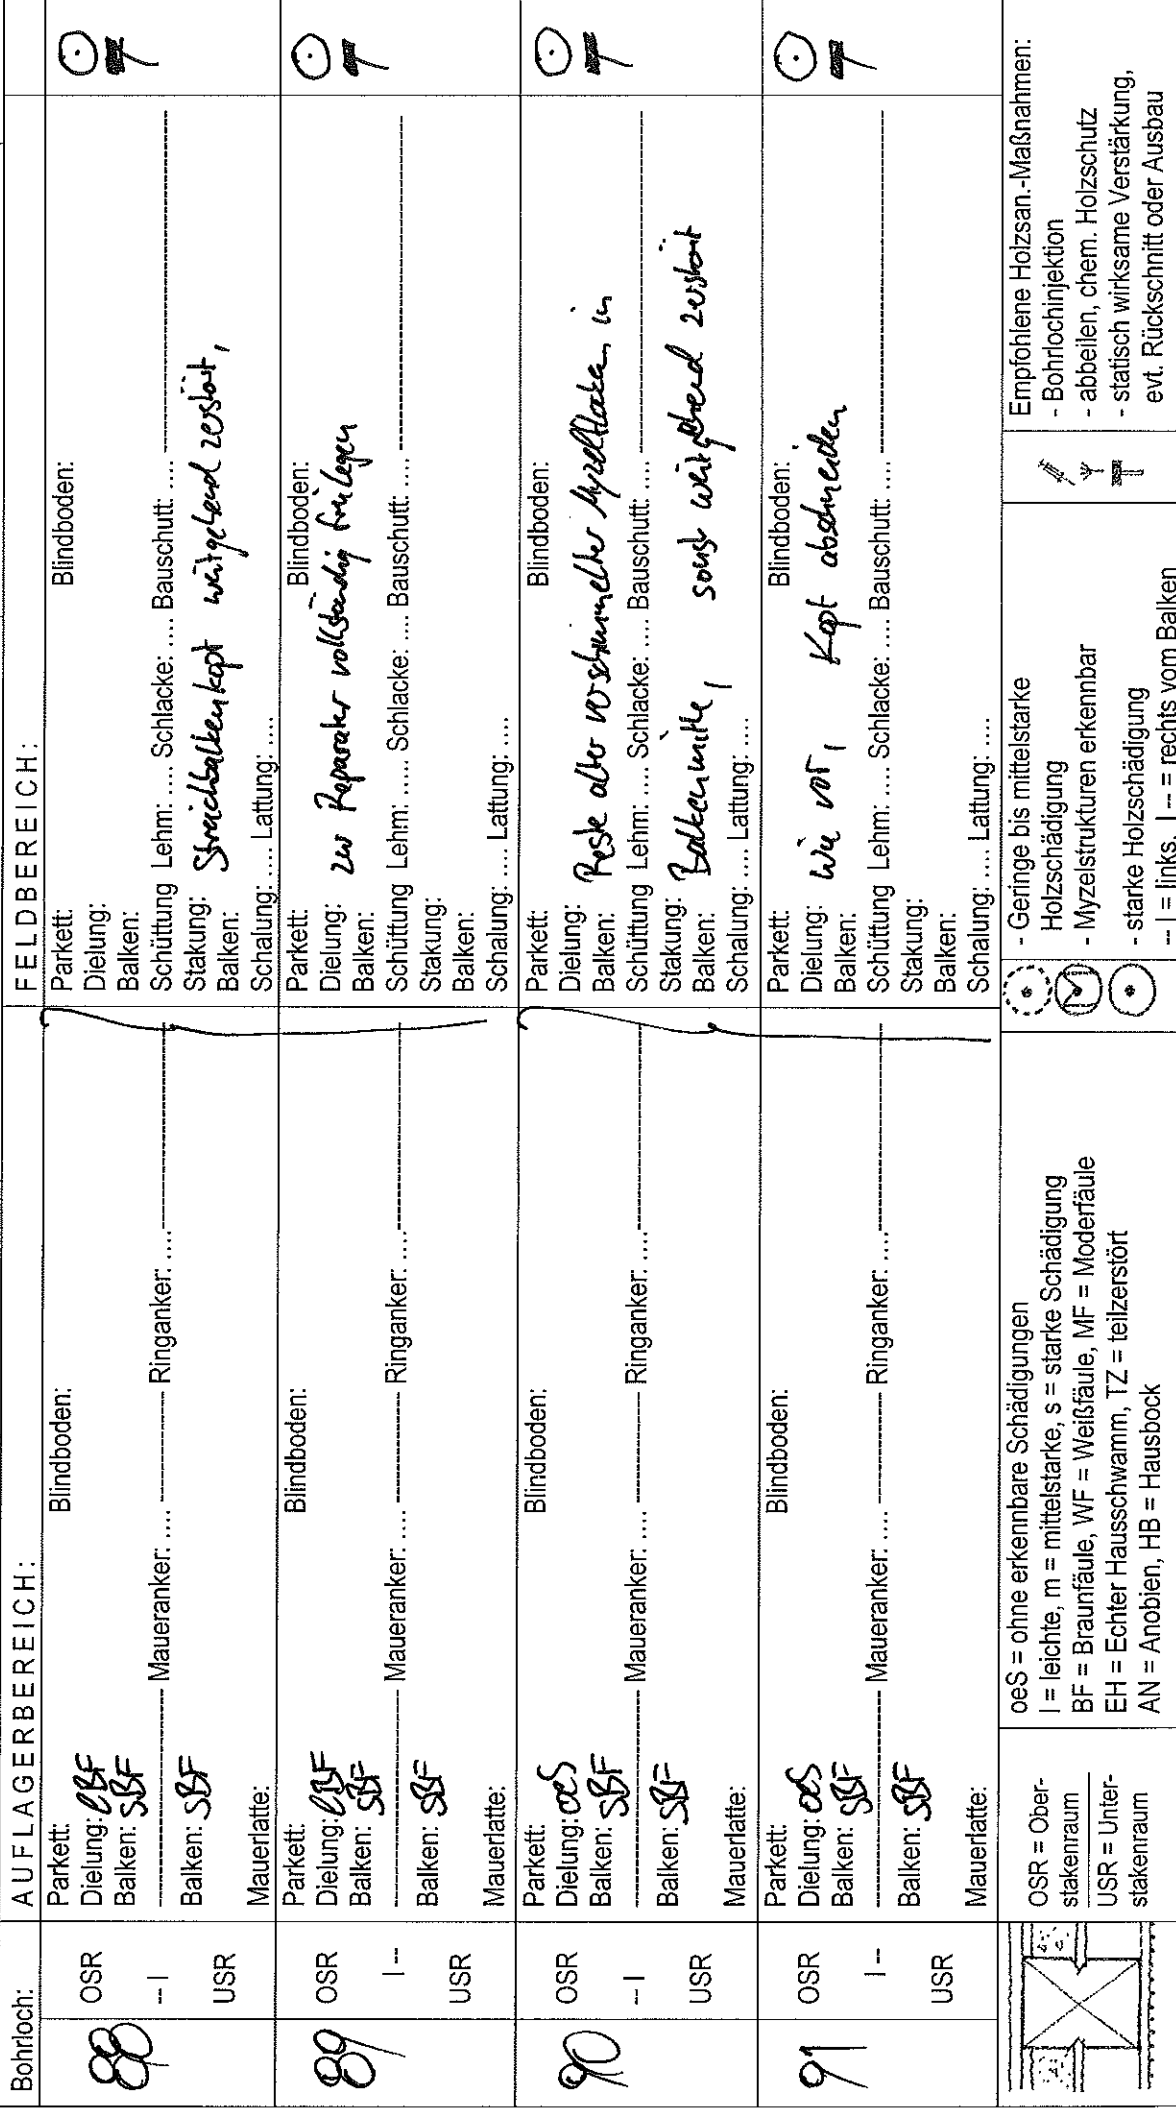 Bohrloch: AUFLAGERBEREICH: FELDBEREICH:
88
OSR
-- I
USR
Parkett: Blindboden:
Dielung: lBF
Balken: sBF
Maueranker: .... Ringanker: ....
Balken: sBF
Mauerlatte:
Parkett: Blindboden:
Dielung:
Balken:
Schüttung Lehm: .... Schlacke: .... Bauschutt: ....
Stakung: Streichbalkenkopf weitgehend zerstört,
Balken:
Schalung: .... Lattung: ....
89
OSR
I --
USR
Parkett: Blindboden:
Dielung: lBF
Balken: sBF
Maueranker: .... Ringanker: ....
Balken: sBF
Mauerlatte:
Parkett: Blindboden:
Dielung: zur Reparatur vollständig freilegen
Balken:
Schüttung Lehm: ..... Schlacke: .... Bauschutt: ....
Stakung:
Balken:
Schalung: .... Lattung: ....
90
OSR
-- I
USR
Parkett: Blindboden:
Dielung: oeS
Balken: sBF
Maueranker: .... Ringanker: ....
Balken: sBF
Mauerlatte:
Parkett: Blindboden:
Dielung: Reste alter verschimmelter Myzelflocken in
Balken:
Schüttung Lehm: .... Schlacke: .... Bauschutt: ....
Stakung: Balkenmitte, sonst weitgehend zerstört
Balken:
Schalung: .... Lattung: ....
91
OSR
I --
USR
Parkett: Blindboden:
Dielung: oeS
Balken: sBF
Maueranker: .... Ringanker: ....
Balken: sBF
Mauerlatte:
Parkett: Blindboden:
Dielung: wie vor, Kopf abschneiden
Balken:
Schüttung Lehm: .... Schlacke: .... Bauschutt: ....
Stakung:
Balken:
Schalung: .... Lattung: ....
OSR = Ober-
stakenraum
USR = Unter-
stakenraum
oeS = ohne erkennbare Schädigungen
l = leichte, m = mittelstarke, s = starke Schädigung
BF = Braunfäule, WF = Weißfäule, MF = Moderfäule
EH = Echter Hausschwamm, TZ = teilzerstört
AN = Anobien, HB = Hausbock
- Geringe bis mittelstarke
Holzschädigung
M
- Myzelstrukturen erkennbar
- starke Holzschädigung
-- I = links, I -- = rechts vom Balken
Empfohlene Holzsan.-Maßnahmen:
- Bohrlochinjektion
- abbeilen, chem. Holzschutz
- statisch wirksame Verstärkung,
evt. Rückschnitt oder Ausbau